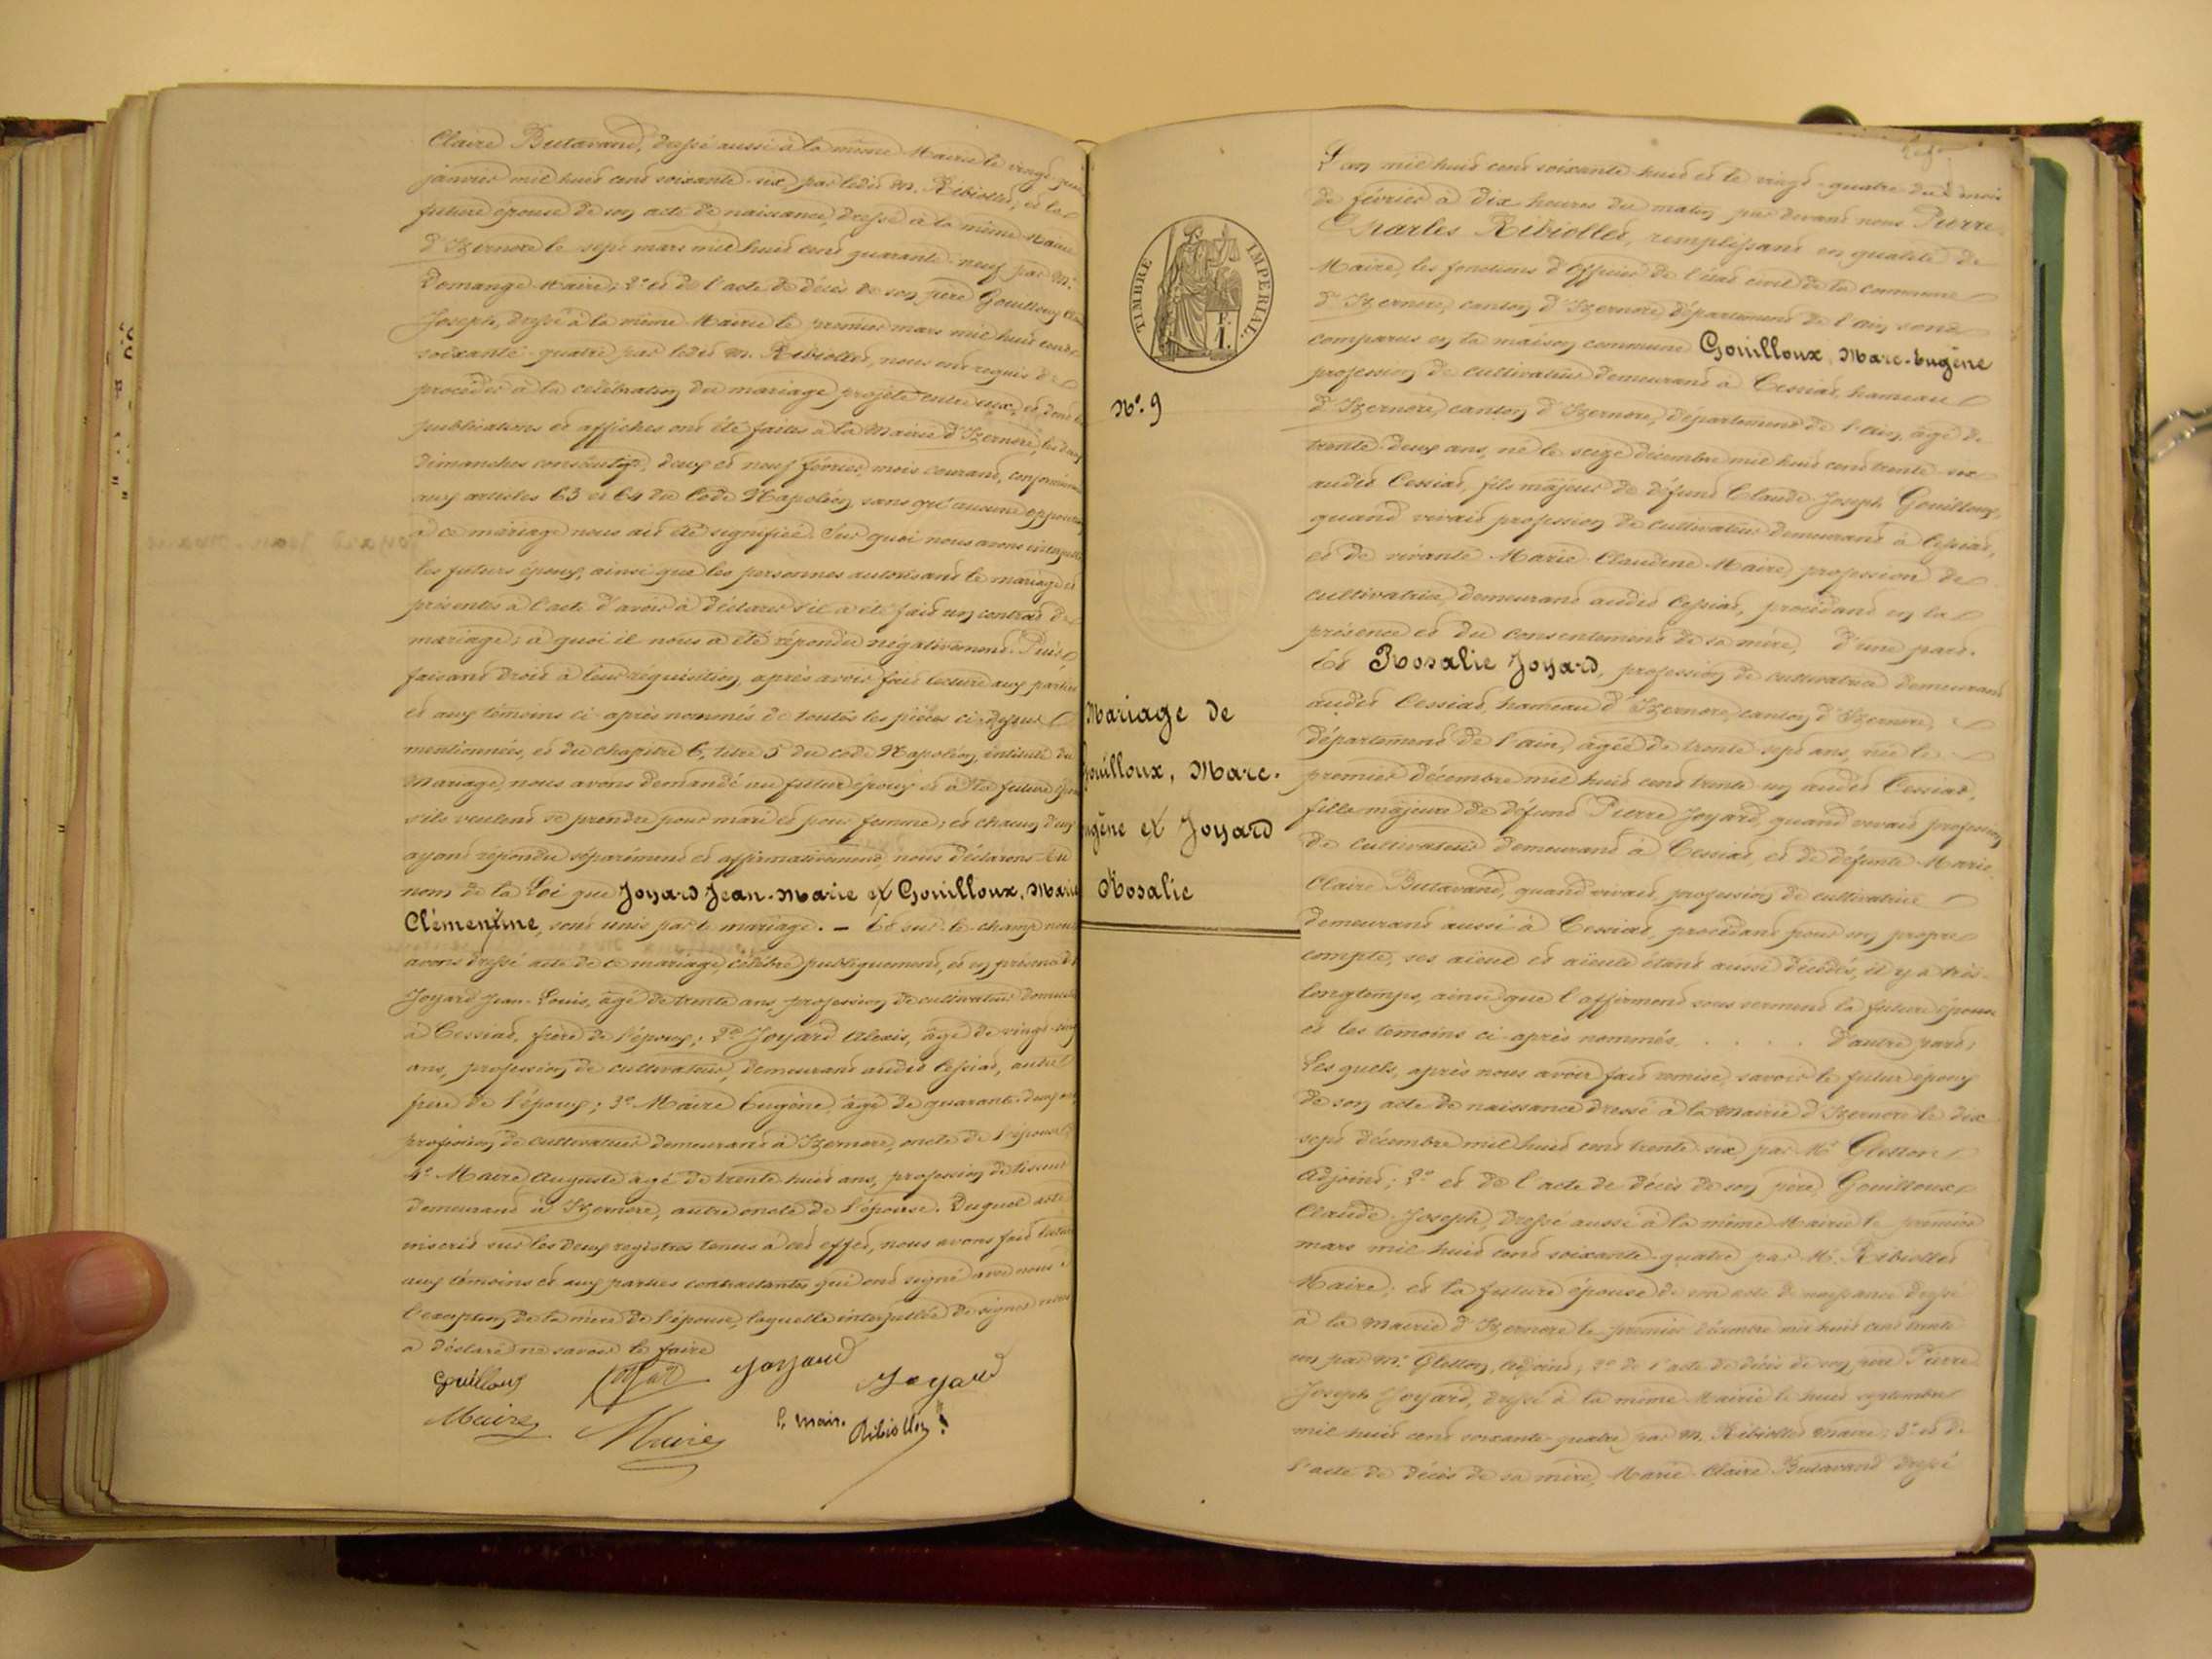 Claire Butavand, dressé aussi à la même Mairie le vingt
janvier mil huit cent soixante-six, par ledit M. Ribiollet, et la
future épouse de son acte de naissance, dressé à la même Mairie
d'Izernore le sept mars mil huit cent quarante-neuf par Mr.
Domange Maire; 2° et de l'acte de décès de son père Gouilloux
Joseph, dressé à la même Mairie le premier mars mil huit cent
soixante-quatre par ledit M. Ribiollet, nous ont requis de
procéder à la célébration du mariage projeté entre eux, et dont les
publications et affiches ont été faites à la Mairie d'Izernore, les deux
dimanches consécutifs, deux et neuf février, mois courant, conformément
aux articles 63 et 64 du Code Napoléon, sans qu'aucune opposition
à ce mariage nous ait été signifiée. Sur quoi nous avons interpellé
les futurs époux, ainsi que les personnes autorisant le mariage et
présentes à l'acte d'avoir à déclarer s'il a été fait un contrat de
mariage; à quoi il nous a été répondu négativement. Puis,
faisant droit à leur réquisition, après avoir fait lecture aux parties
et aux témoins ci-après nommés de toutes les pièces ci-dessus
mentionnées, et du chapitre 6, titre 5 du code Napoléon, intitulé du
Mariage, nous avons demandé au futur époux et à la future épouse
s'ils veulent se prendre pour mari et pour femme; et chacun d'eux
ayant répondu séparément et affirmativement, nous déclarons au
nom de la Loi que Joyard Jean-Marie et Gouilloux, Marie
Clémentine, sont unis par le mariage. — Et sur-le-champ nous
avons dressé acte de ce mariage célébré publiquement, et en présence de
Joyard Jean-Louis, âgé de trente ans, profession de cultivateur
à Cessiat, frère de l'époux; 2° Joyard Alexis, âgé de vingt-
ans, profession de cultivateur, demeurant audit Cessiat, autre
frère de l'époux; 3° Maire Eugène, âgé de quarante-deux ans,
profession de cultivateur demeurant à Izernore, oncle de l'épouse
4° Maire Auguste âgé de trente-huit ans, profession de tisseur
demeurant à Izernore, autre oncle de l'épouse. Duquel acte
inscrit sur les deux registres tenus à cet effet, nous avons fait lecture
aux témoins et aux parties contractantes qui ont signé avec nous à
l'exception de la mère de l'épouse, laquelle interpellée de signer nous
a déclaré ne savoir le faire
Gouilloux Joyard Joyard
Maire Maire Le Maire Ribiollet
TIMBRE IMPERIAL.
1 F.
N°. 9
Mariage de
Gouilloux, Marc-
Eugène et Joyard
Rosalie
L'an mil huit cent soixante-huit et le vingt-quatre du mois
de février à dix heures du matin par devant nous Pierre
Charles Ribiollet, remplissant en qualité de
Maire, les fonctions d'officier de l'état civil de la commune
d'Izernore, canton d'Izernore, département de l'ain, sont
comparus en la maison commune Gouilloux, Marc-Eugène
profession de cultivateur demeurant à Cessiat, hameau
d'Izernore, canton d'Izernore, département de l'ain, âgé de
trente-deux ans, né le seize décembre mil huit cent trente-six
audit Cessiat, fils majeur de défunt Claude-Joseph Gouilloux,
quand vivait profession de cultivateur demeurant à Cessiat,
et de vivante Marie-Claudene Maire, profession de
cultivatrice, demeurant audit Cessiat, procédant en la
présence et du consentement de sa mère, d'une part.
Et Rosalie Joyard, profession de cultivatrice demeurant
audit Cessiat, hameau d'Izernore, canton d'Izernore,
département de l'ain, âgée de trente-sept ans, née le
premier décembre mil huit cent trente-un audit Cessiat,
fille majeure de défunt Pierre Joyard, quand vivait profession
de cultivateur demeurant à Cessiat, et de défunte Marie
Claire Butavand, quand vivait, profession de cultivatrice
demeurant aussi à Cessiat, procédant pour son propre
compte, ses aïeul et aïeule étant aussi décédés, il y a très-
longtemps, ainsi que l'affirment sous serment la future épouse
et les témoins ci-après nommés. . . . . d'autre part;
Lesquels, après nous avoir fait remise, savoir le futur époux
de son acte de naissance dressé à la Mairie d'Izernore le dix
sept décembre mil huit cent trente-six par Mr Gletton
Adjoint; 2° et de l'acte de décès de son père, Gouilloux
Claude-Joseph, dressé aussi à la même Mairie le premier
mars mil huit cent soixante-quatre par M. Ribiollet
Maire; et la future épouse de son acte de naissance dressé
à la Mairie d'Izernore le premier décembre mil huit cent trente
un par Mr. Gletton, Adjoint; 2° de l'acte de décès de son père Pierre
Joseph Joyard, dressé à la même Mairie le huit septembre
mil huit cent soixante-quatre par M. Ribiollet Maire; 3° et de
l'acte de décès de sa mère, Marie-Claire Butavand dressé